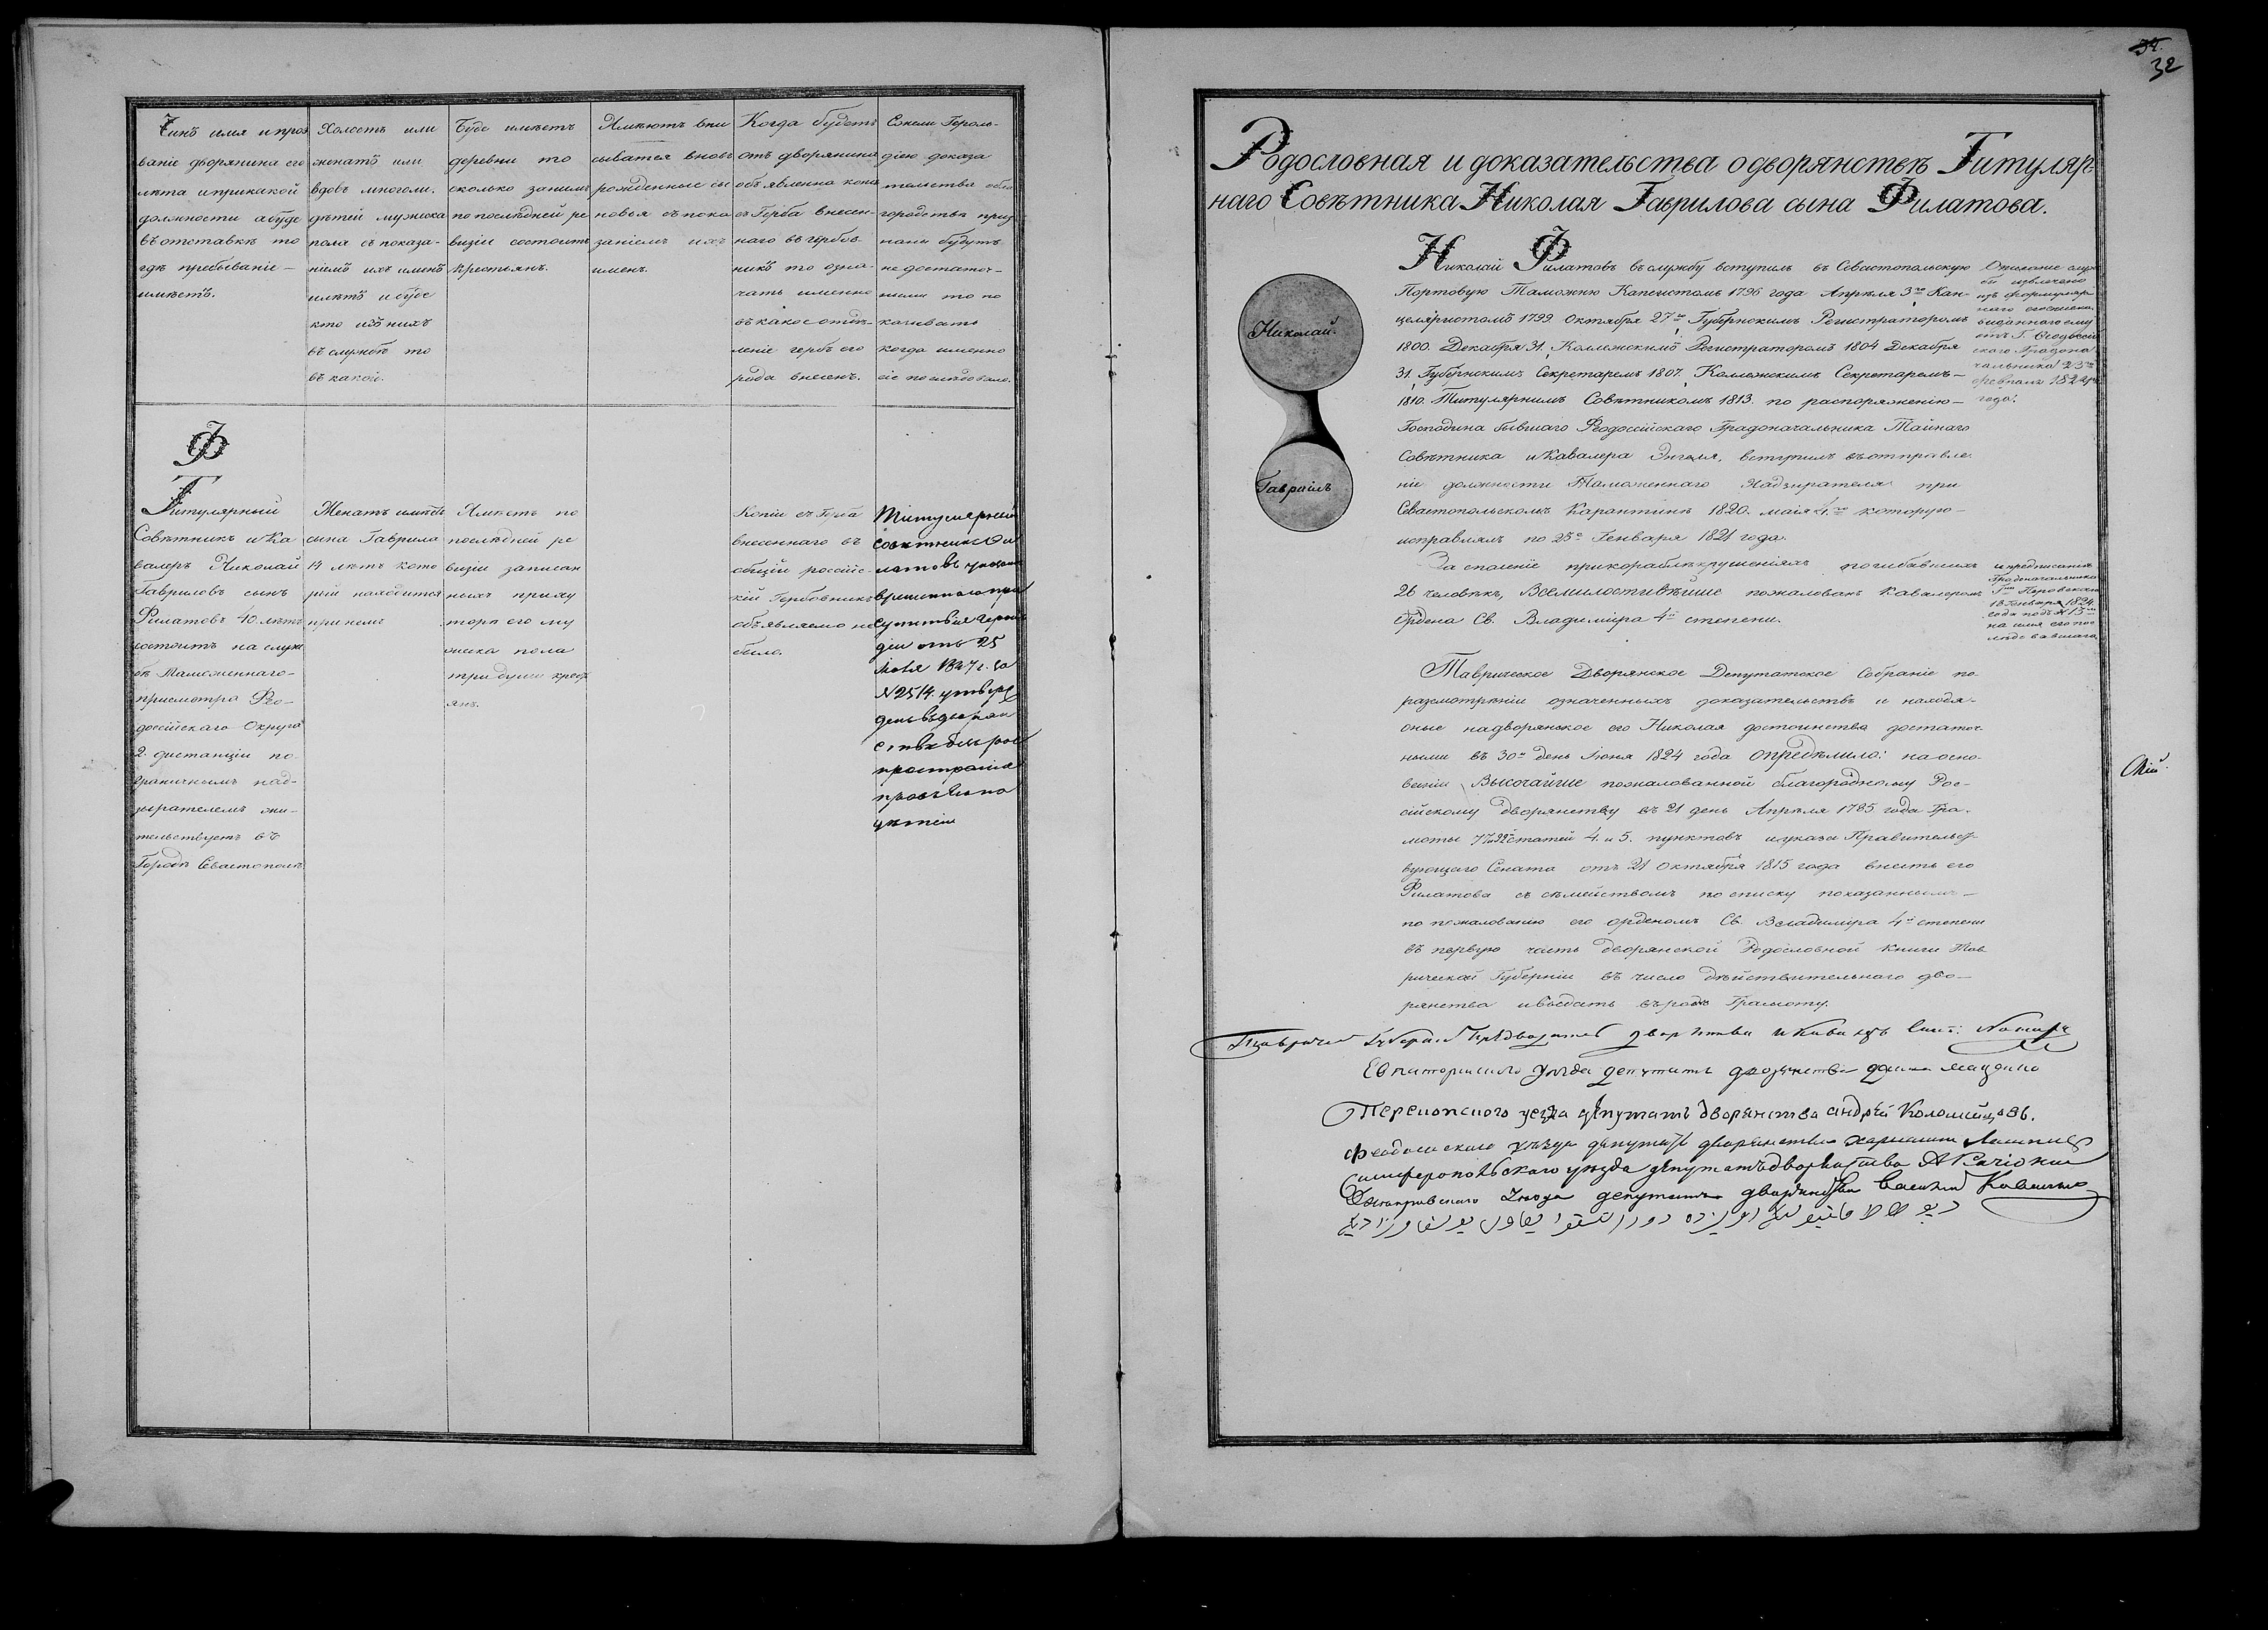 Чинъ имя и проз
ваніе дворянина его
лѣта и при какой
должности а буде
въ отставкѣ то
гдѣ пребываніе
имѣетъ.
Холостъ или
женатъ или
вдовъ много ли
дѣтей мужеска
пола съ показа-
ніемъ ихъ именъ
и лѣтъ и буде
кто изъ нихъ
въ службѣ то
въ какой.
Буде имѣетъ
деревни то
сколько за нимъ
по послѣдней ре
визіи состоитъ
крестьянъ.
Имѣютъ впи
сыватся вновь
рожденные сы
новья съ пока
заніемъ ихъ
именъ.
Когда будетъ
отъ дворянина
объявлена копія
съ Герба внесен-
наго въ гербов-
никъ то озна-
чать именно
въ какое отдѣ-
леніе гербъ его
рода внесенъ.
Ежели Героль-
діею доказа
тельства бла
городства приз
наны будутъ
не достаточ-
ными то по
казывать
когда именно
сіе послѣдовало.
Ф
Титулярный
Совѣтникъ и Ка
валеръ Николай
Гавриловъ сынъ
Филатовъ 40 лѣтъ
состоитъ на служ
бѣ Таможеннаго
присмотра Ѳео-
досійскаго Округа
2. дистанціи по
граничнымъ над-
зирателемъ жи-
тельствуетъ въ
Городѣ Севастополѣ
Женатъ имѣетъ
сына Гаврила
14 лѣтъ кото
рый находится
при немъ
Имѣетъ по
послѣдней ре
визіи записан
ныхъ при ху
торѣ его му
жеска пола
три души крест
янъ.
Копіи съ Герба
внесеннаго въ
общій россійс-
кій Гербовникъ
объявляемо не
было.
Титулярный
совѣтникъ Фи
латовъ указомъ
временнаго при
сутствія Героль
діи отъ 25
1847 г. за
№ 2514. утверж
денъ въ дворян
ствѣ безъ рас
пространія
правъ на
дѣтей
32
Родословная и доказательства о дворянствѣ Титуляр-
наго Совѣтника Николая Гаврилова сына Филатова.
Николай
Гаврiилъ
Николай Филатовъ въ службу вступилъ въ Севастопольскую
Портовую Таможню Капеистомъ 1796 года Апрѣля 3го Кан-
целяристомъ 1799. Октября 27го Губернскимъ Регистраторомъ
1800. Декабря 31. Коллежскимъ Регистраторомъ 1804 Декабря
31. Губернскимъ Секретаремъ 1807. Коллежскимъ Секретаремъ
1810. Титулярнымъ Совѣтникомъ 1813. по распоряженію
Господина бывшаго Ѳеодосійскаго Градоначальника Тайнаго
Совѣтника и Кавалера Энгеля, вступилъ въ отправле-
ніе должности Таможеннаго Надзирателя при
Севастопольскомъ Карантинѣ 1820. маія 4го которую
исправлялъ по 25е Генваря 1821 года.
Описаніе служ
бы извлечено
изъ формуляр
наго его списка
выданнаго ему
отъ Г. Ѳеодосій
скаго Градона
чальника 23го
февраля 1824го
года.
За спасеніе при кораблекрушеніяхъ погибавшихъ
26 человѣкъ, Всемилостивѣйше пожалованъ Кавалеромъ
Ордена Св. Владиміра 4й степени.
и предписанія
Градоначальника
Гна Перовскаго
18 Генваря 1824.
года подъ № 13м
на имя его пос
лѣдовавшаго
Таврическое Дворянское Депутатское Собраніе по
разсмотрѣніи означенныхъ доказательствъ и находя
оные на дворянское его Николая достоинство достаточ
ными въ 30й день Іюня 1824 года опредѣлило: на осно-
ваніи Высочайше пожалованной благородному Рос-
сійскому дворянству въ 21 день Апрѣля 1785 года Гра-
моты 77 и 92 статей 4. и 5. пунктовъ и указа Правительст-
вующаго Сената отъ 21 октября 1815 года внесть его
Филатова съ сѣмействомъ по списку показаннымъ
по пожалованію его орденомъ Св. Владиміра 4й степени
въ первую часть дворянской Родословной Книги Тав
рической Губерніи въ число дѣйствительнаго дво-
рянства и выдать въ родъ Грамоту.
Евпаторійскаго уѣзда депутатъ дворянства
Перекопского уезда депутатъ дворянства андрѣй Коломийцовъ.
Феодосискаго уѣзда депутатъ дворянства
Симферопольскаго уѣзда депутатъ дворянства
Днѣпровскаго уѣзда депутатъ дворянства Василий